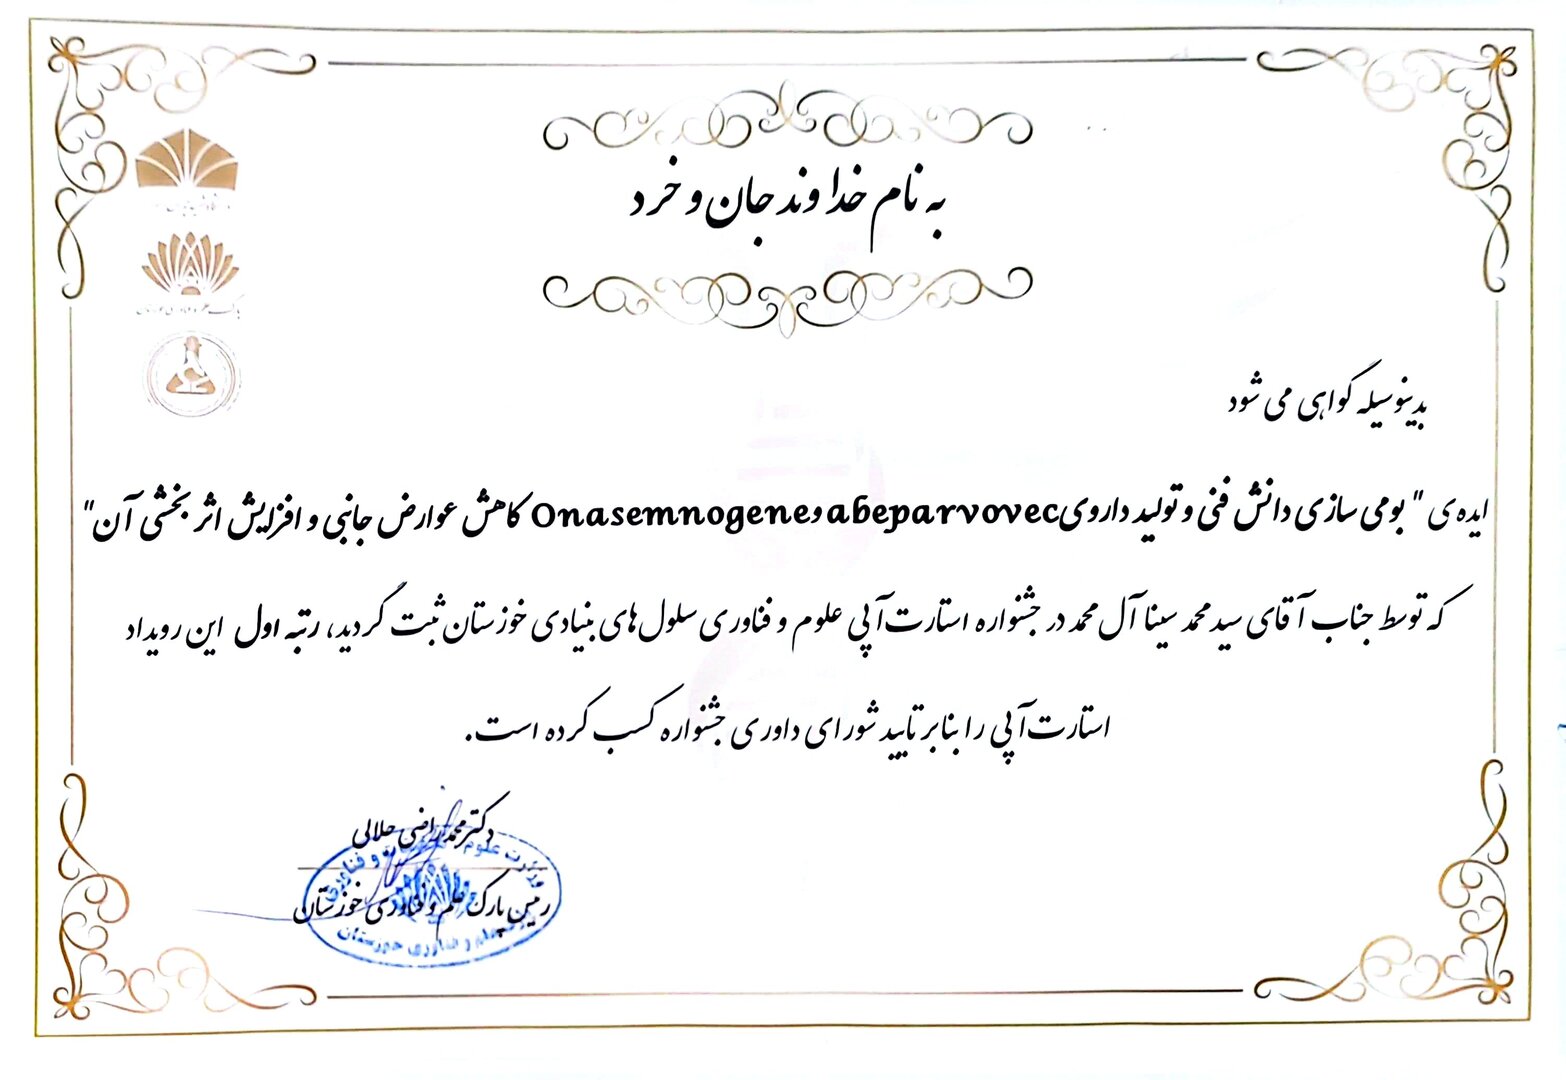 به نام خداوند جان و خرد
بدینوسیله گواهی می شود
ایده ی " بومی سازی دانش فنی و تولید داروی Onasemnogene abeparvovec و کاهش عوارض جانبی و افزایش اثر بخشی آن"
که توسط جناب آقای سید محمد سینا آل محمد در جشنواره استارت آپی علوم و فناوری سلول های بنیادی خوزستان ثبت گردید، رتبه اول این رویداد
استارت آپی را بنابر تایید شورای داوری جشنواره کسب کرده است.
دکتر محمد راضی جلالی
پارک علم و فناوری خوزستان